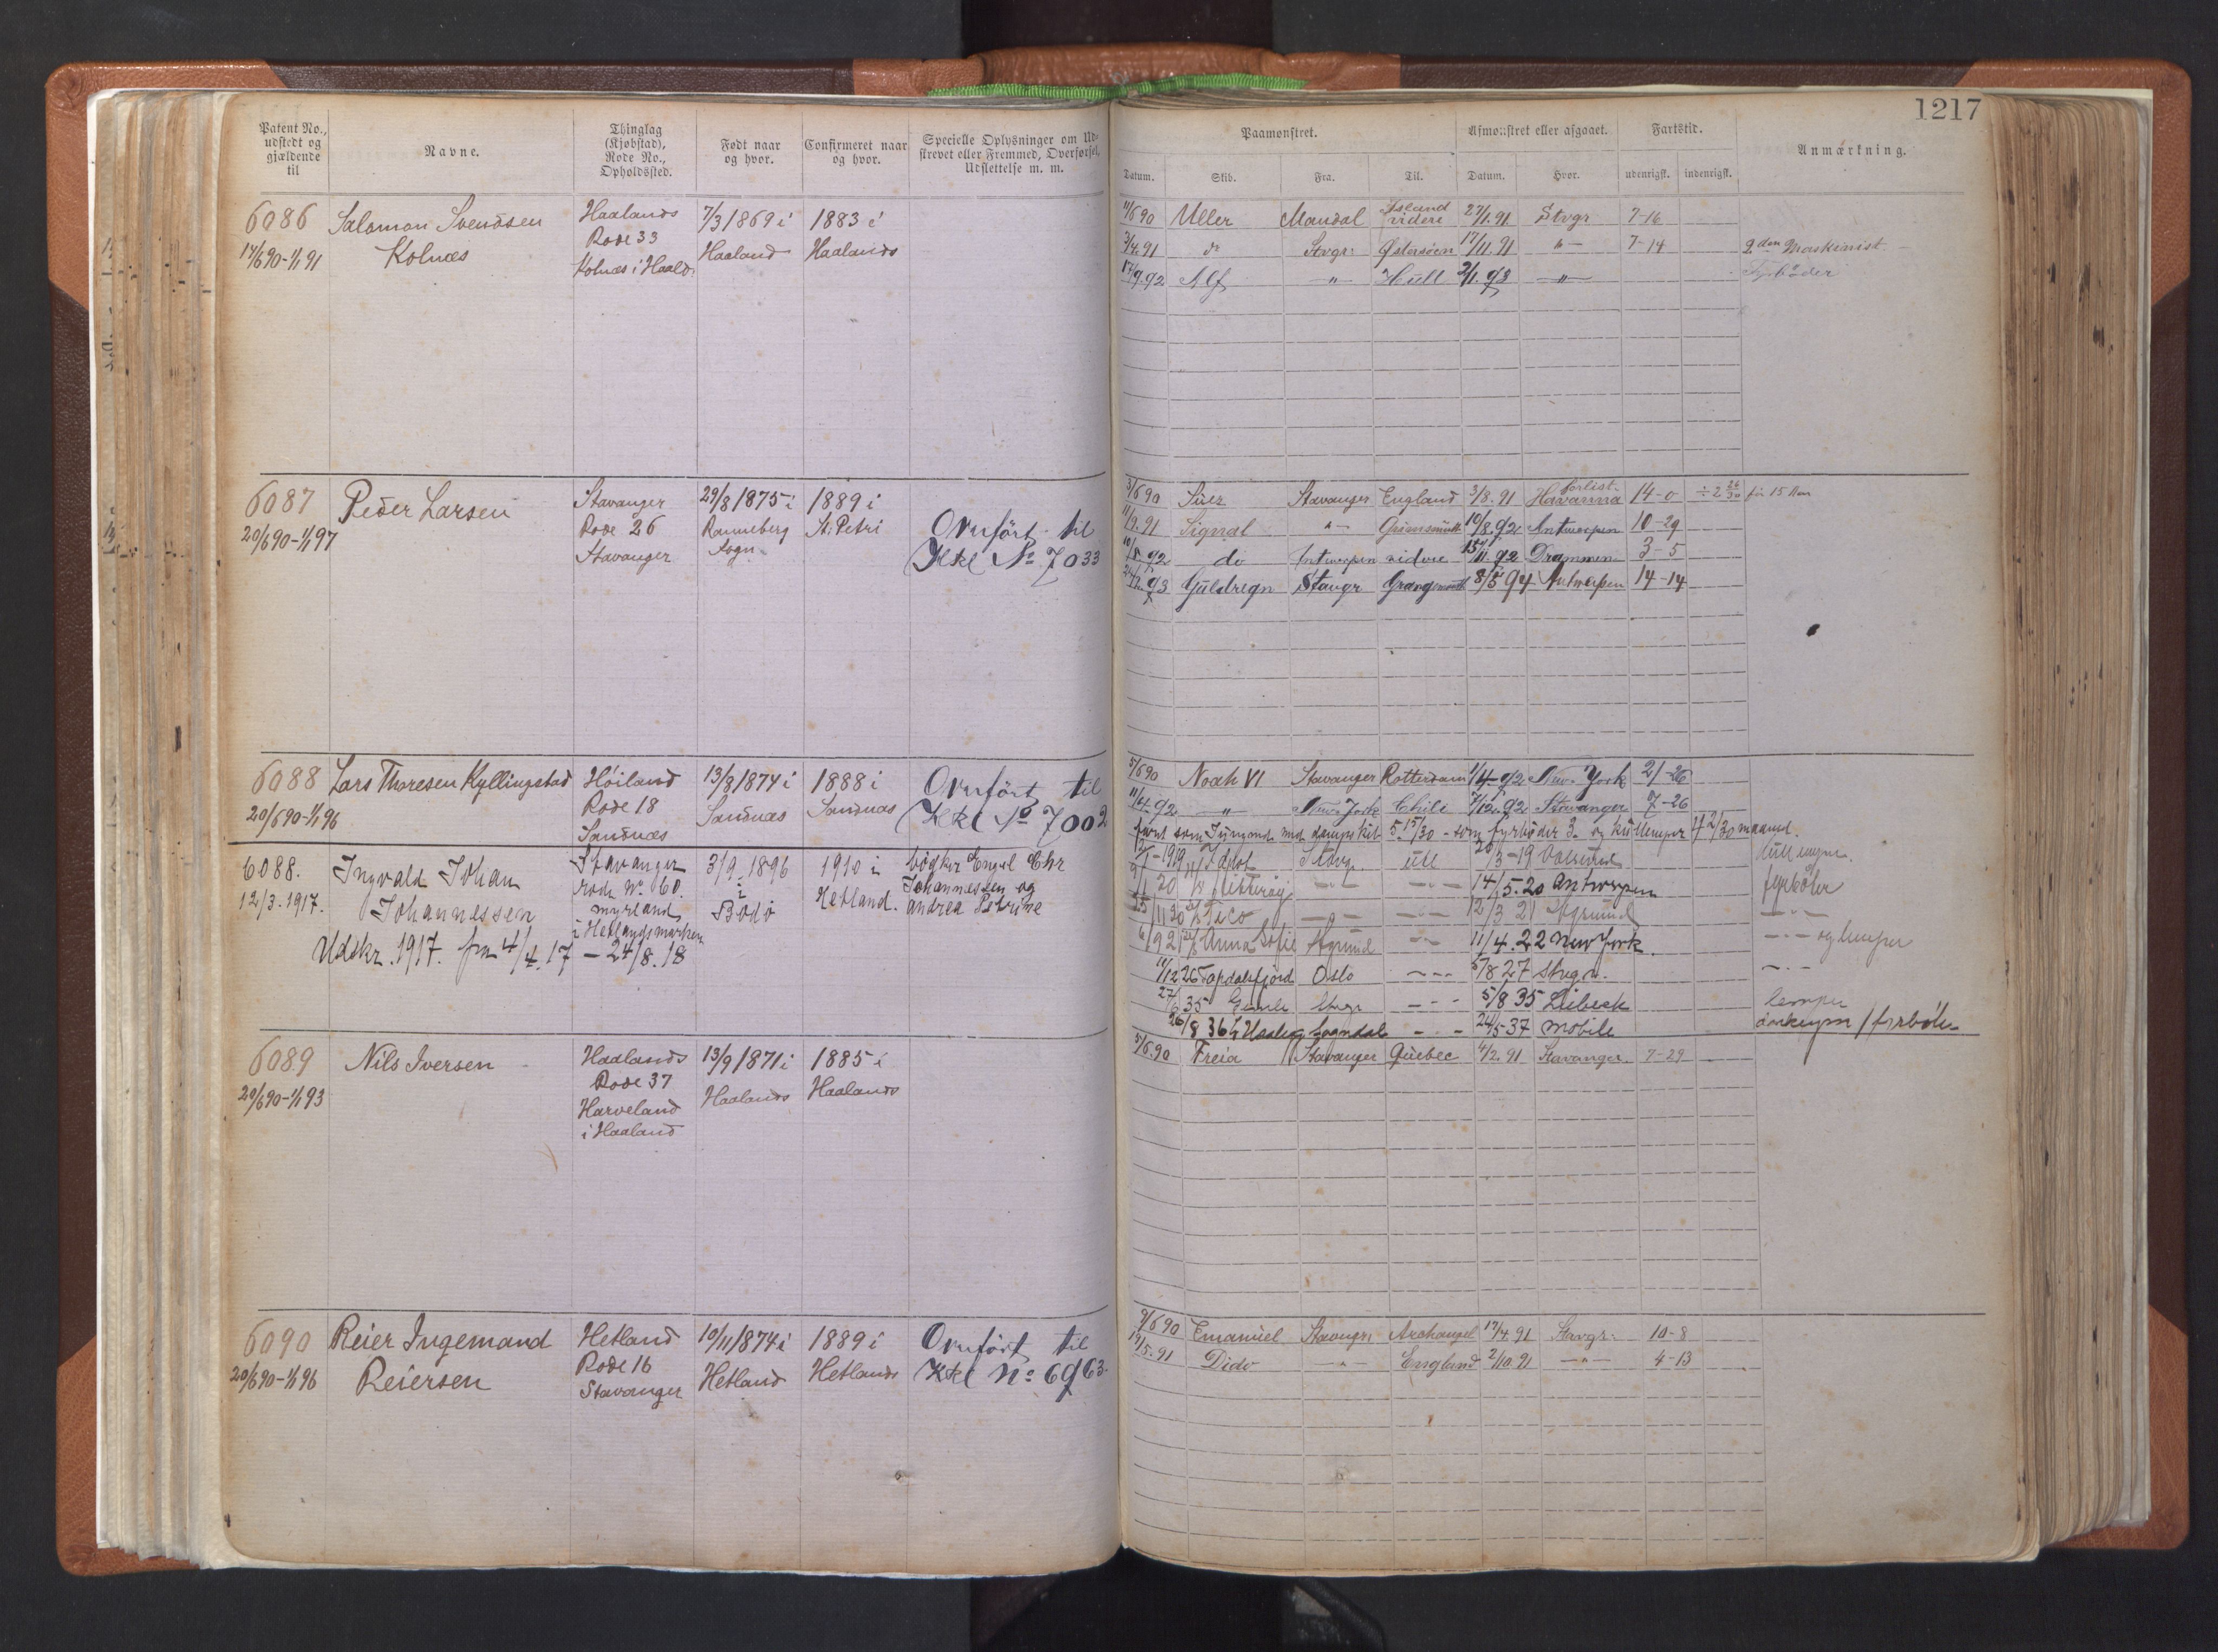 1217
Patent No., udstedt og gjældende til
Navne.
Thinglag (Kjøbstad), Rode No., Opholdssted.
Født naar og hvor.
Confirmeret naar og hvor.
Specielle Oplysninger om Udskrevet eller Fremmed, Overførsel, Udslettelse m. m.
Paamønstret.
Afmønstret eller afgaaet.
Fartstid.
Anmærkning.
Datum. Skib. Fra. Til. Datum. Hvor. udenrigsk. indenrigsk.
6086 Salomon Svendsen Haalands 7/3 1869 i 1883 i
Kolnæs Rode 33 Haaland Haalands
17/6 90 - 1/1 91 Kolnæs i Haald:
11/6 90 Uller Mandal Island videre 27/1. 91 Stvgr 7-16
91 do Stvgr: Østersøen 17/11. 91 " - 7-14 2den Maskinist -
17/9. 92 Alf - " - Hull 2/1. 93 - " - Fyrbøder
6087 Peder Larsen Stavanger 29/8 1875 i 1889 i
20/6 90 - 1/1 97 Rode 26 Ranneberg St. Petri Overført til
Stavanger Sogn Hkl No 7033
3/6 90 Suez Stavanger England 3/8. 91 Havanna forlist 14-0 ÷ 2 26/30 før 15 Aar
11/9. 91 Signal " - 10/8. 92 Antwerpen 10-29
10/8. 92 do Antwerpen videre 15/11. 92 Drammen 3-5
93 Guldregn Stavgr Grangemouth 8/5 94 Antwerpen 14-14
6088 Lars Thoresen Kyllingstad Høiland 13/8 1874 i 1888 i Overført til
20/6 90 - 1/1 96 Rode 18 Sandnæs Sandnæs Hkl No 7002
Sandnæs
5/6 90 Noah VI Stavanger Rotterdam 1/4. 92 New York 21-26
11/4. 92 - " - New York Chile 7/12. 92 Stavanger 7-26
6088. Ingvald Johan Stavanger 3/9. 1896 1910 i
12/3. 1917. Johannessen rode No. 60. i Bodø Hetland.
myrland
i Hetlandsmarken
Johannessen og
Andrea Petrine
Udskr. 1917. fra 4/4. 17 - 24/8. 18
fyrbøter
14/5. 20 Antwerpen
12/3 21
Anna Sofie 11/4. 22 New York.
11/12 26 Topdalsfjord Oslo 27 Stvgr.
27/6 35 Gimle Stvgr 5/8 35 Lübeck lemper
26/8 36 Sogndal 24/5 37 Mobile donkeym / fyrbøter
6089 Nils Iversen Haalands 13/9 1871 i 1885 i
20/6 90 - 1/1 93 Rode 37 Haalands Haalands
Harveland
i Haaland
5/6. 90 Freia Stavanger Quebec 4/2. 91 Stavanger 7-29
6090 Reier Ingemand Hetland 10/11 1874 i 1889 i Overført til
20/6 90 - 1/1 96 Reiersen Rode 16 Hetland Hetlands Hkl No 6963.
Stavanger
9/6 90 Emanuel Stavngr: Archangel 17/4. 91 Stavgr: 10-8
19/5. 91 Dido - " - England 2/10. 91 - " - 4-13